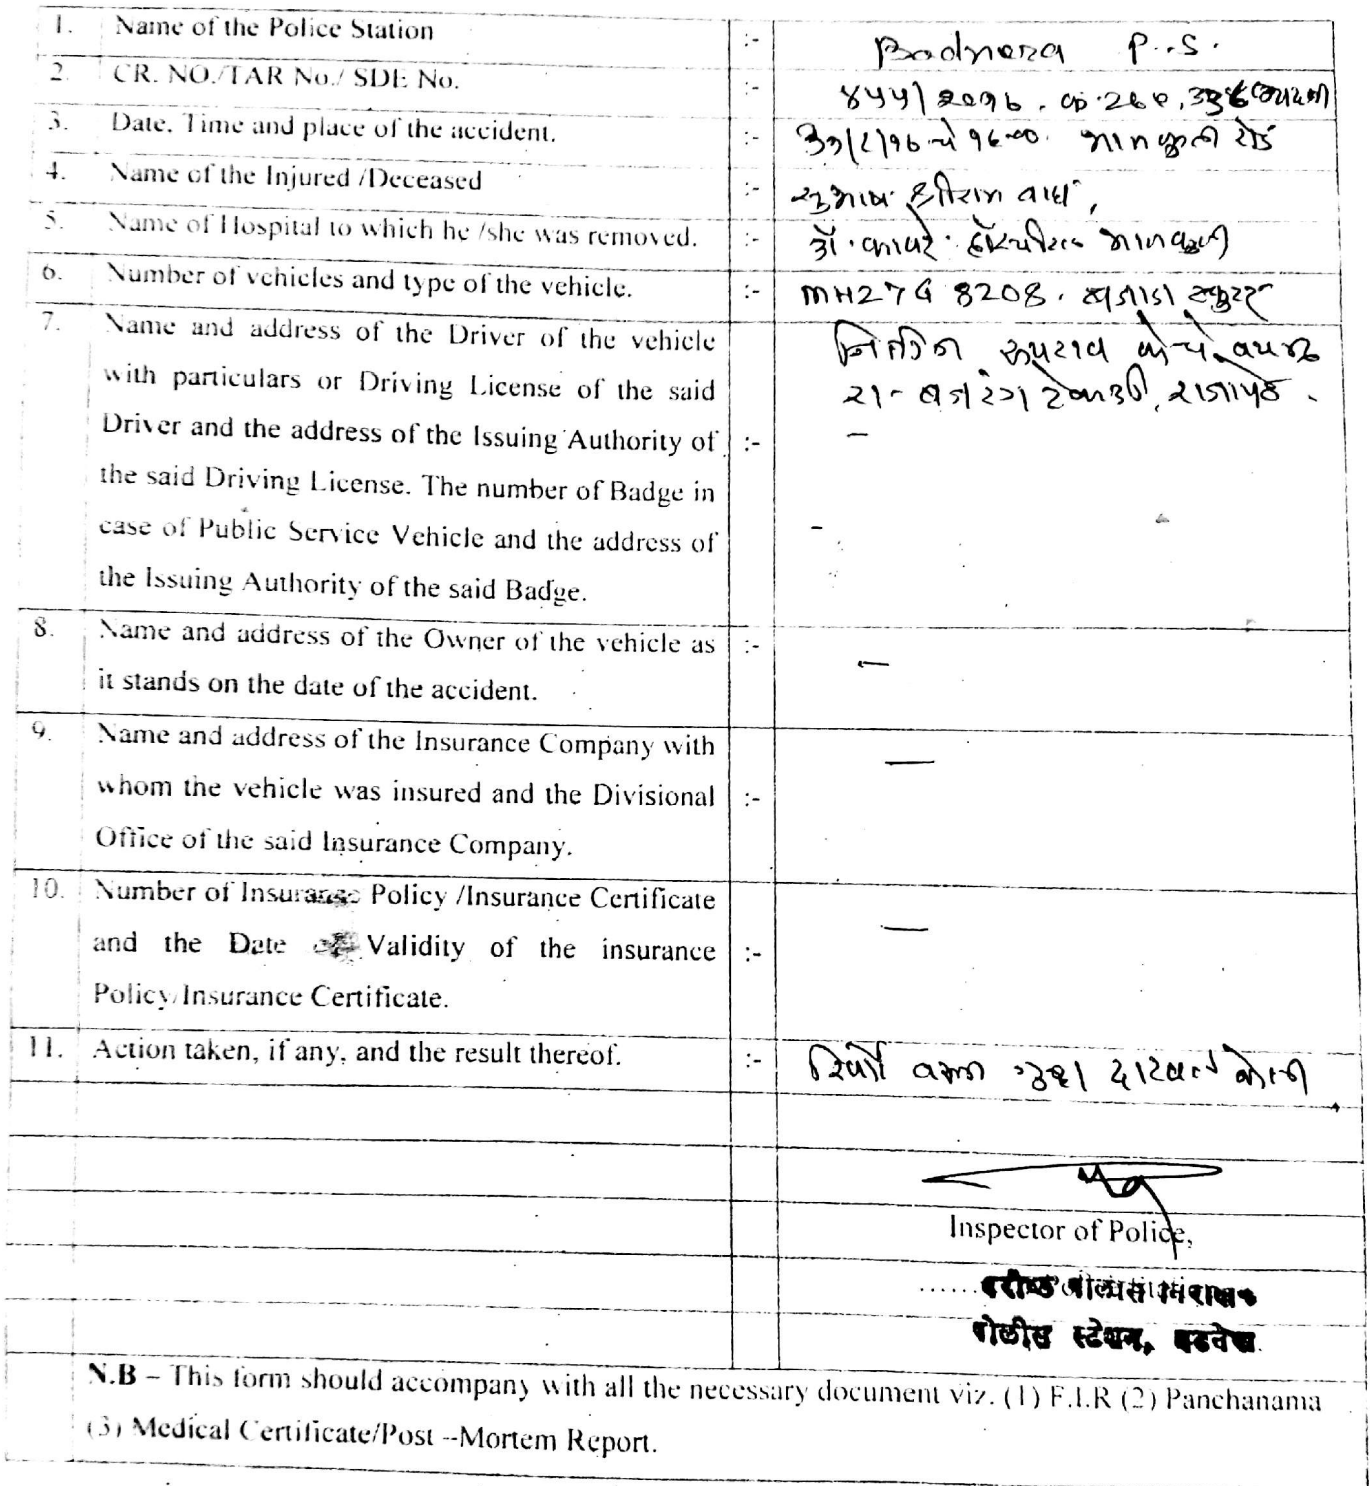 1. Name of the Police Station :- Badnera P.S.
2. CR. NO./TAR No./ SDE No. :- ४५५/२०१७. क. २७९, ३३७
3. Date. Time and place of the accident. :- ३१/८/१७ चे १८.०० भातकुली रोड
4. Name of the Injured /Deceased :- सुभाष श्रीराम वाघ,
5. Name of Hospital to which he /she was removed. :- डॉ. कावरे हॉस्पीटल भातकुली
6. Number of vehicles and type of the vehicle. :- MH27G 8208. बजाज स्कुटर
7. Name and address of the Driver of the vehicle :- नितीन रुपराव
with particulars or Driving License of the said रा- बजरंग टेकडी, राजापेठ.
Driver and the address of the Issuing Authority of –
the said Driving License. The number of Badge in
case of Public Service Vehicle and the address of –
the Issuing Authority of the said Badge.
8. Name and address of the Owner of the vehicle as :- –
it stands on the date of the accident.
9. Name and address of the Insurance Company with —
whom the vehicle was insured and the Divisional :-
Office of the said Insurance Company.
10. Number of Insurance Policy /Insurance Certificate
and the Date of Validity of the insurance :- —
Policy/Insurance Certificate.
11. Action taken, if any, and the result thereof. :- रिपोर्ट वरून गुन्हा दाखल केला
Inspector of Police,
वरीष्ठ पोलीस निरीक्षक
पोलीस स्टेशन, बडनेरा.
N.B – This form should accompany with all the necessary document viz. (1) F.I.R (2) Panchanama
(3) Medical Certificate/Post --Mortem Report.